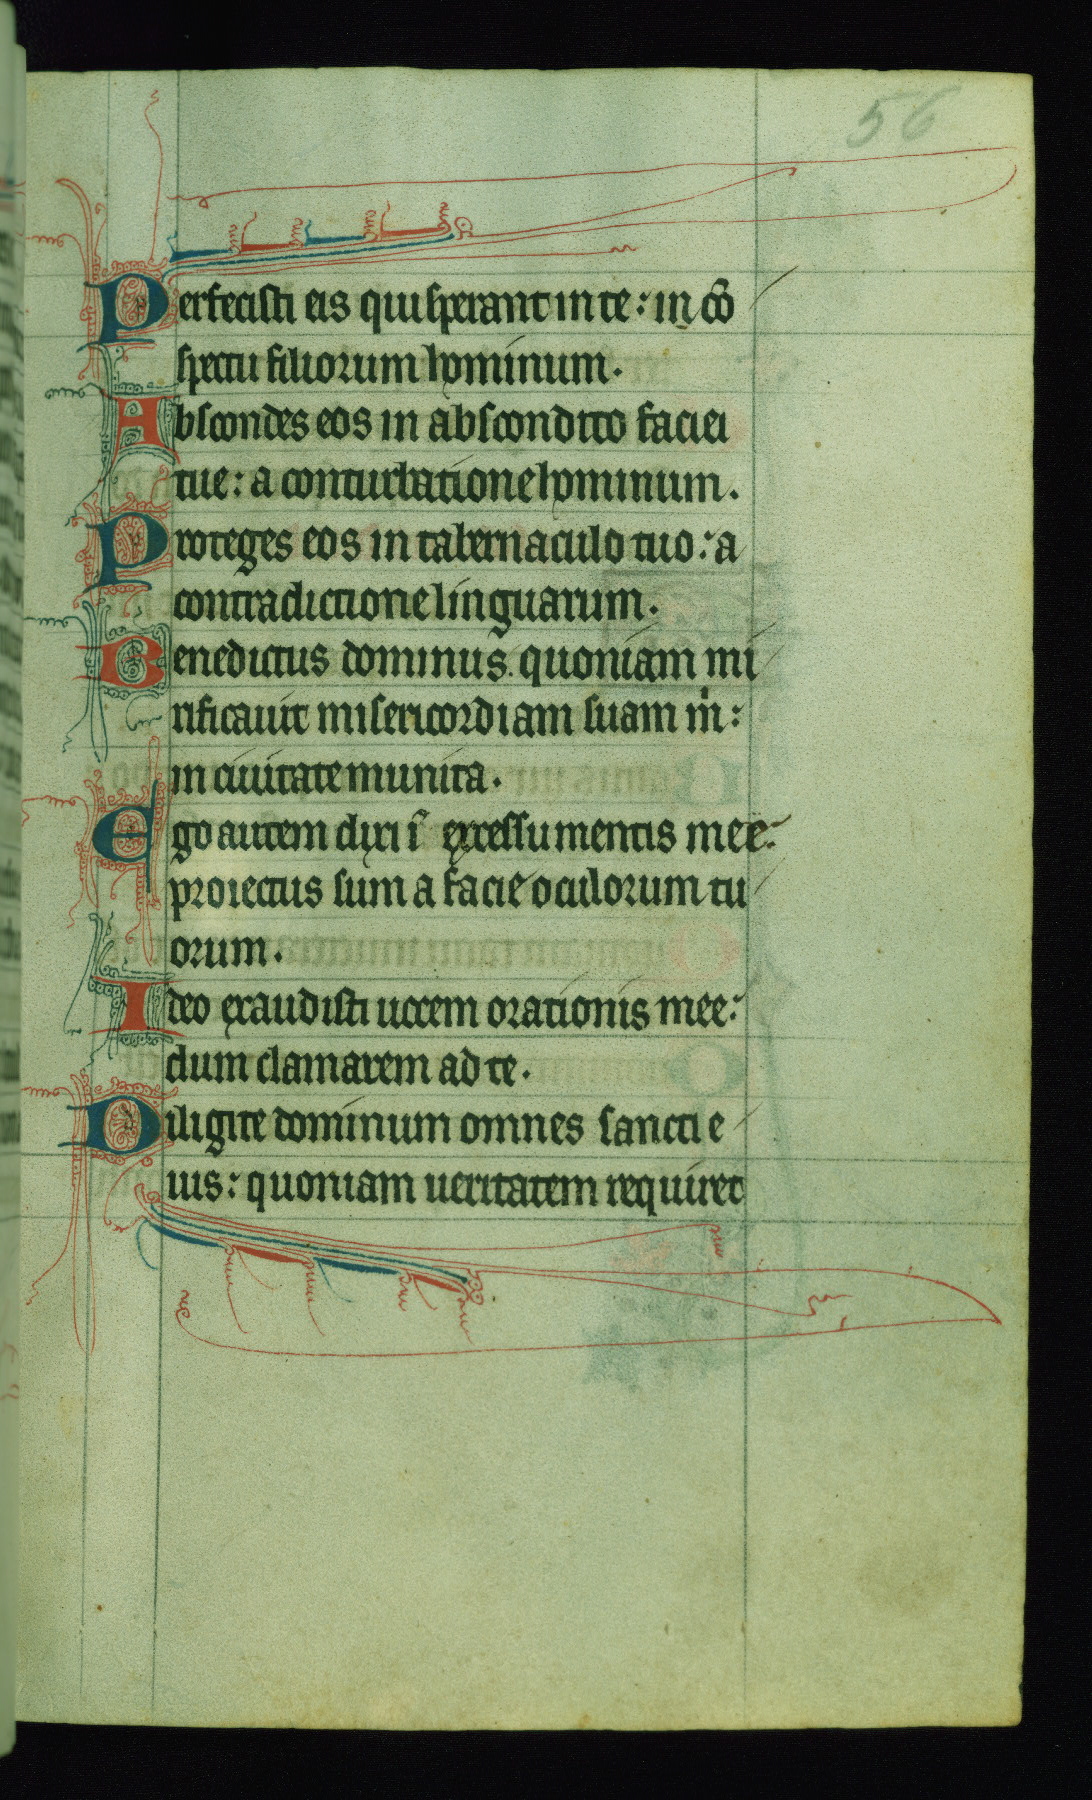 56
Perfecisti eis qui sperant in te: in cō
spectu filiorum hominum.
Abscondes eos in abscondito faciei
tue: a conturbatione hominum.
Proteges eos in tabernaculo tuo: a
contradictione linguarum.
Benedictus dominus. quoniam mi
rificauit misericordiam suam m̍:
in ciuitate munita.
Ego autem dixi ī excessu mentis mee:
proiectus sum a facie oculorum tu
orum.
Ideo exaudisti uocem orationis mee:
dum clamarem ad te.
Diligite dominum omnes sancti e
ius: quoniam ueritatem requiret